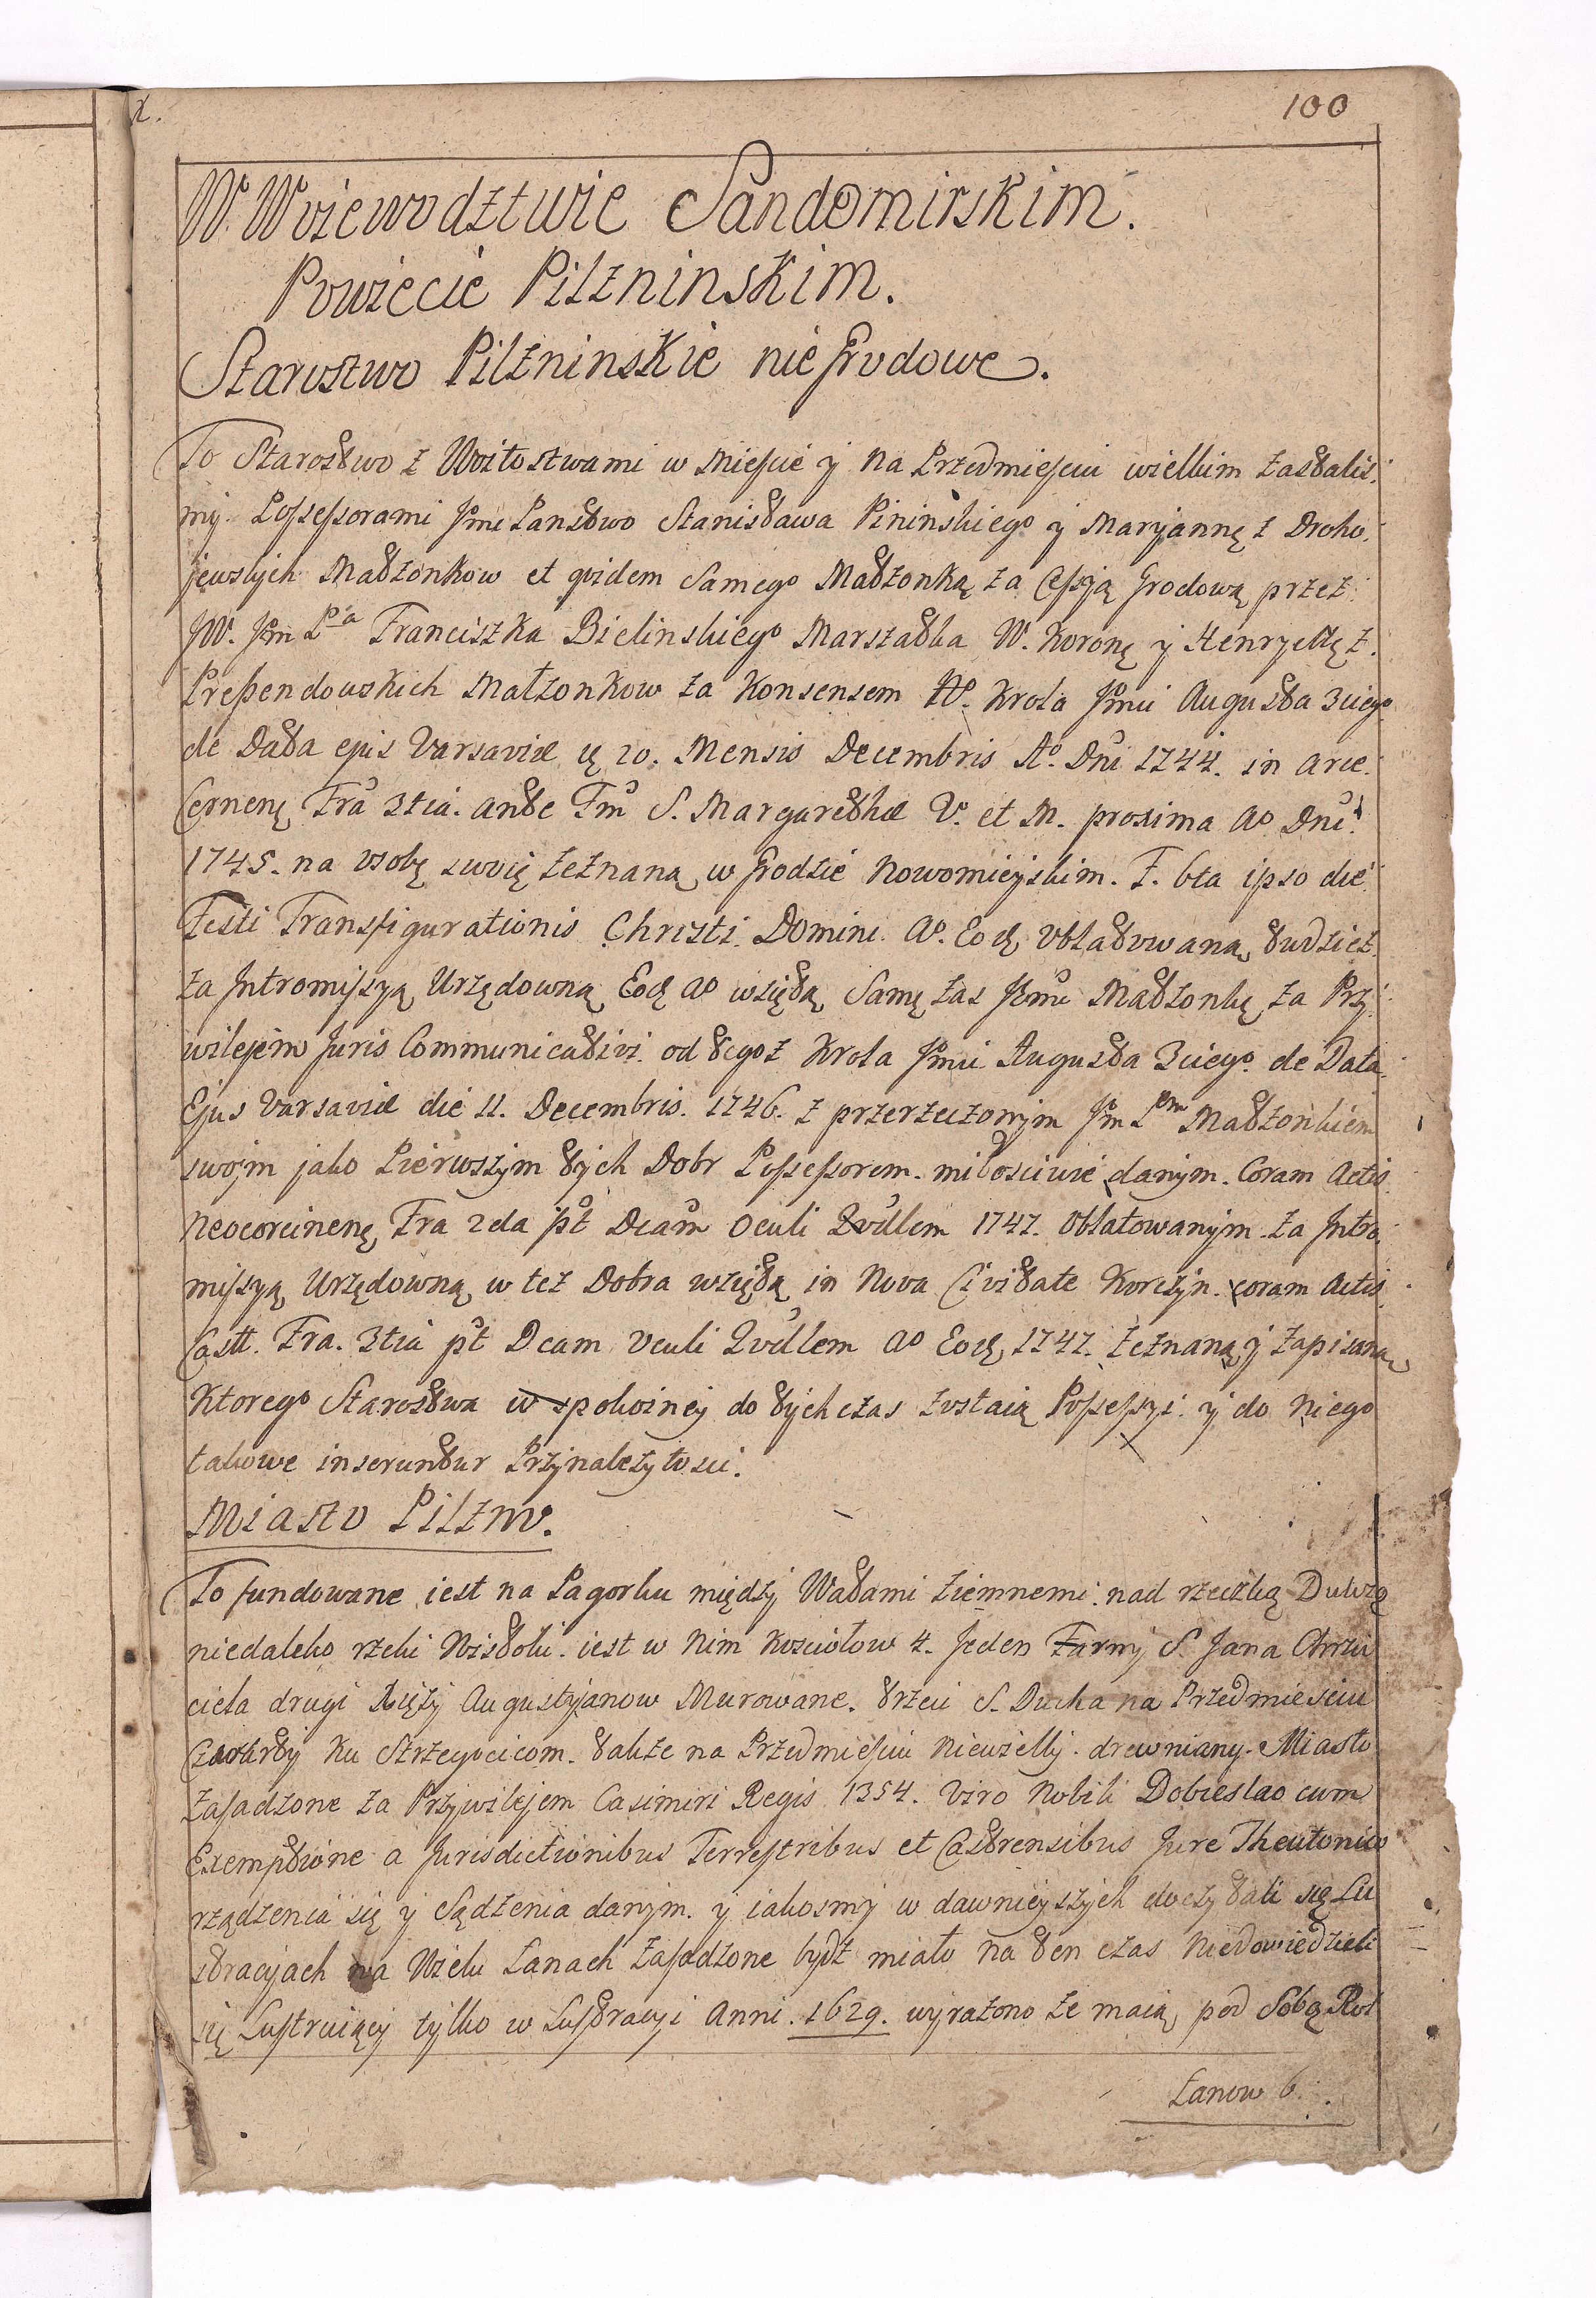 100
W Woiewodztwie Sandomirskim.
Powiecie Pilzninskim.
Starostwo Pilzninskie nie Grodowe.
To Starostwo z Woitostwami w Miescie y na Przedmiesciu wielkim zastalis
my Possessorami Jmc Panstwo Stanisława Pininskiego y Maryannę z Droho
jewskich Małżonkow et qvidem Samego Małżonka za Cessją Grodową przez
JW. Jm Pa Franciszka Bielinskiego Marszałka W. Koronę y Henryettę z
Preßendowskich Małżonkow za Konsensem Ao. Krola Jmci Augusta 3ciego
de Data ejus Varsaviæ 20. Mensis Decembris Ao. Dni 1744. in Arce
Cernenę Fra 3tia. ante Fm S. Margarethæ V. et M. proxima Ao Dni
1745. na osobę swoię zeznaną w Grodzie Nowomieyskim. F. 6ta ipso die
Festi Transfigurationis Christi Domini Ao. Eod oblatowaną tudziesz
za Intromissyą Urzędowną Eod Ao wziętą Samę zas Jmc Małżonkę za Przy
wilejem Juris Communicativi od tegoż Krola Jmci Augusta 3ciego de Data
Ejus Varsaviæ die 11. Decembris. 1746. z przerzeczonym Jm Pem Małżonkiem
swojm jako Pierwszym tych Dobr Possessorem miłosciwie danym. Coram Actis
Neocorcinenę Fra 2da pt Dcam Oculi Qvdlem 1747. Oblatowanym za Intro
missyą Urzędowną w też Dobra wziętą in Nova Civitate Korczyn. coram Actis
Castt. Fra. 3tia pt Dcam Oculi Qvdlem Ao Eod 1747. zeznaną y zapisaną
Ktorego Starostwa w spokoiney do tych czas zostaią Possessyi y do niego
takowe inseruntur Przynalezytosci.
Miasto Pilzno.
To fundowane iest na Pagorku między Wałami ziemnemi nad rzeczką Dulczą
niedaleko rzeki Wisłoki. iest w nim Kosciołow 4. Jeden Farny S. Jana Chrzci
ciela drugi Xięży Augustyanow Murowane. trzeci S. Ducha na Przedmiesciu
Czwarty ku Strzegocicom. także na Przedmiesciu Niewielky drewniany. Miasto
Zasadzone za Przywilejem Casimiri Regis 1354. Viro Nobili Dobieslao cum
Exemptione a Jurisdictionibus Terrestribus et Castrensibus Jure Theutonico
rządzenia się y Sądzenia danym. y iakosmy w dawnieyszych doczytali się Lu
stracyach na Wielu Łanach zasadzone bydz miało na ten czas niedowiedzieli
się Lustruiący tylko w Lustracyi Anni 1629. wyrażono że maią pod Sobą Rol
Łanow 6